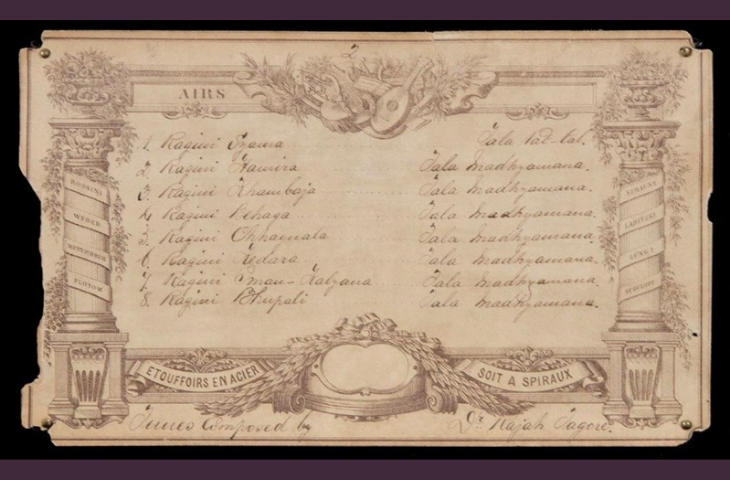 2
AIRS
1. Ragini Syama Tala Pat-tal.
2. Ragini Hamira Tala Madhyamana.
3. Ragini Khambaja Tala Madhyamana.
4. Ragini Behaga Tala Madhyamana.
5. Ragini Chhayanata Tala Madhyamana.
6. Ragini Kedara Tala Madhyamana.
7. Ragini Iman-Kalyana Tala Madhyamana.
8. Ragini Bhupali Tala Madhyamana.
ROSSINI
WEBER
MEYERBEER
FLOTOW
STRAUSS
LABITZKI
ETOUFFOIRS EN ACIER
SOIT A SPIRAUX
Tunes Composed by Dr. Rajah Tagore.